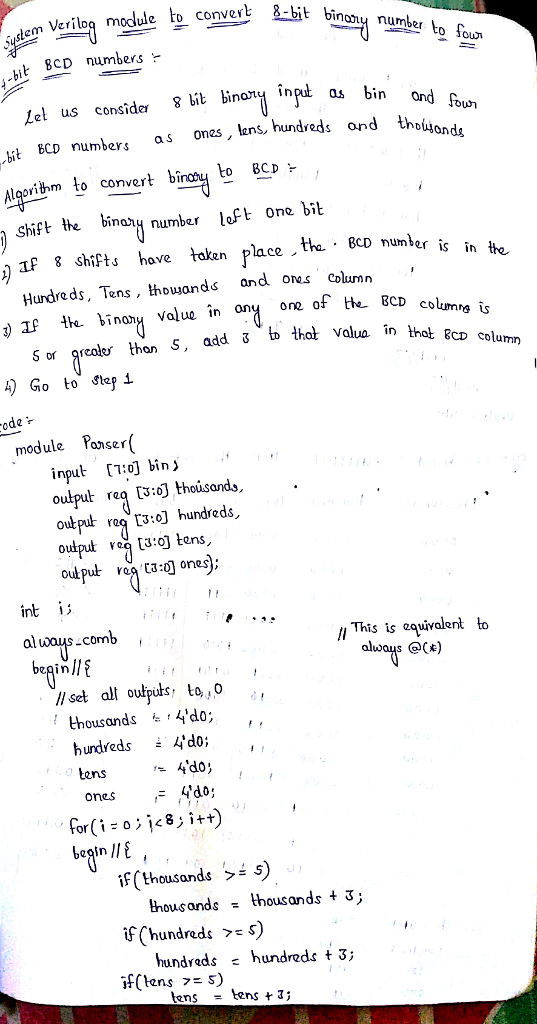 System Verilog module to convert 8-bit binary number to four
4-bit BCD numbers :-
Let us consider 8 bit binary input as bin and four
-bit BCD numbers as ones, tens, hundreds and thousands
Algorithm to convert binary to BCD :-
1) Shift the binary number left one bit
2) If 8 shifts have taken place, the BCD number is in the
Hundreds, Tens, thousands and ones column
3) If the binary value in any one of the BCD columns is
5 or greater than 5, add 3 to that value in that BCD column
4) Go to Step 1
code :-
module Parser(
input [7:0] bin;
output reg [3:0] thousands,
output reg [3:0] hundreds,
output reg [3:0] tens,
output reg [3:0] ones);
int i;
always_comb // This is equivalent to
begin //{ always @(*)
// set all outputs to 0
thousands = 4'd0;
hundreds = 4'd0;
tens = 4'd0;
ones = 4'd0;
for(i=0; i<8; i++)
begin //{
if(thousands >= 5)
thousands = thousands + 3;
if(hundreds >= 5)
hundreds = hundreds + 3;
if(tens >= 5)
tens = tens + 3;